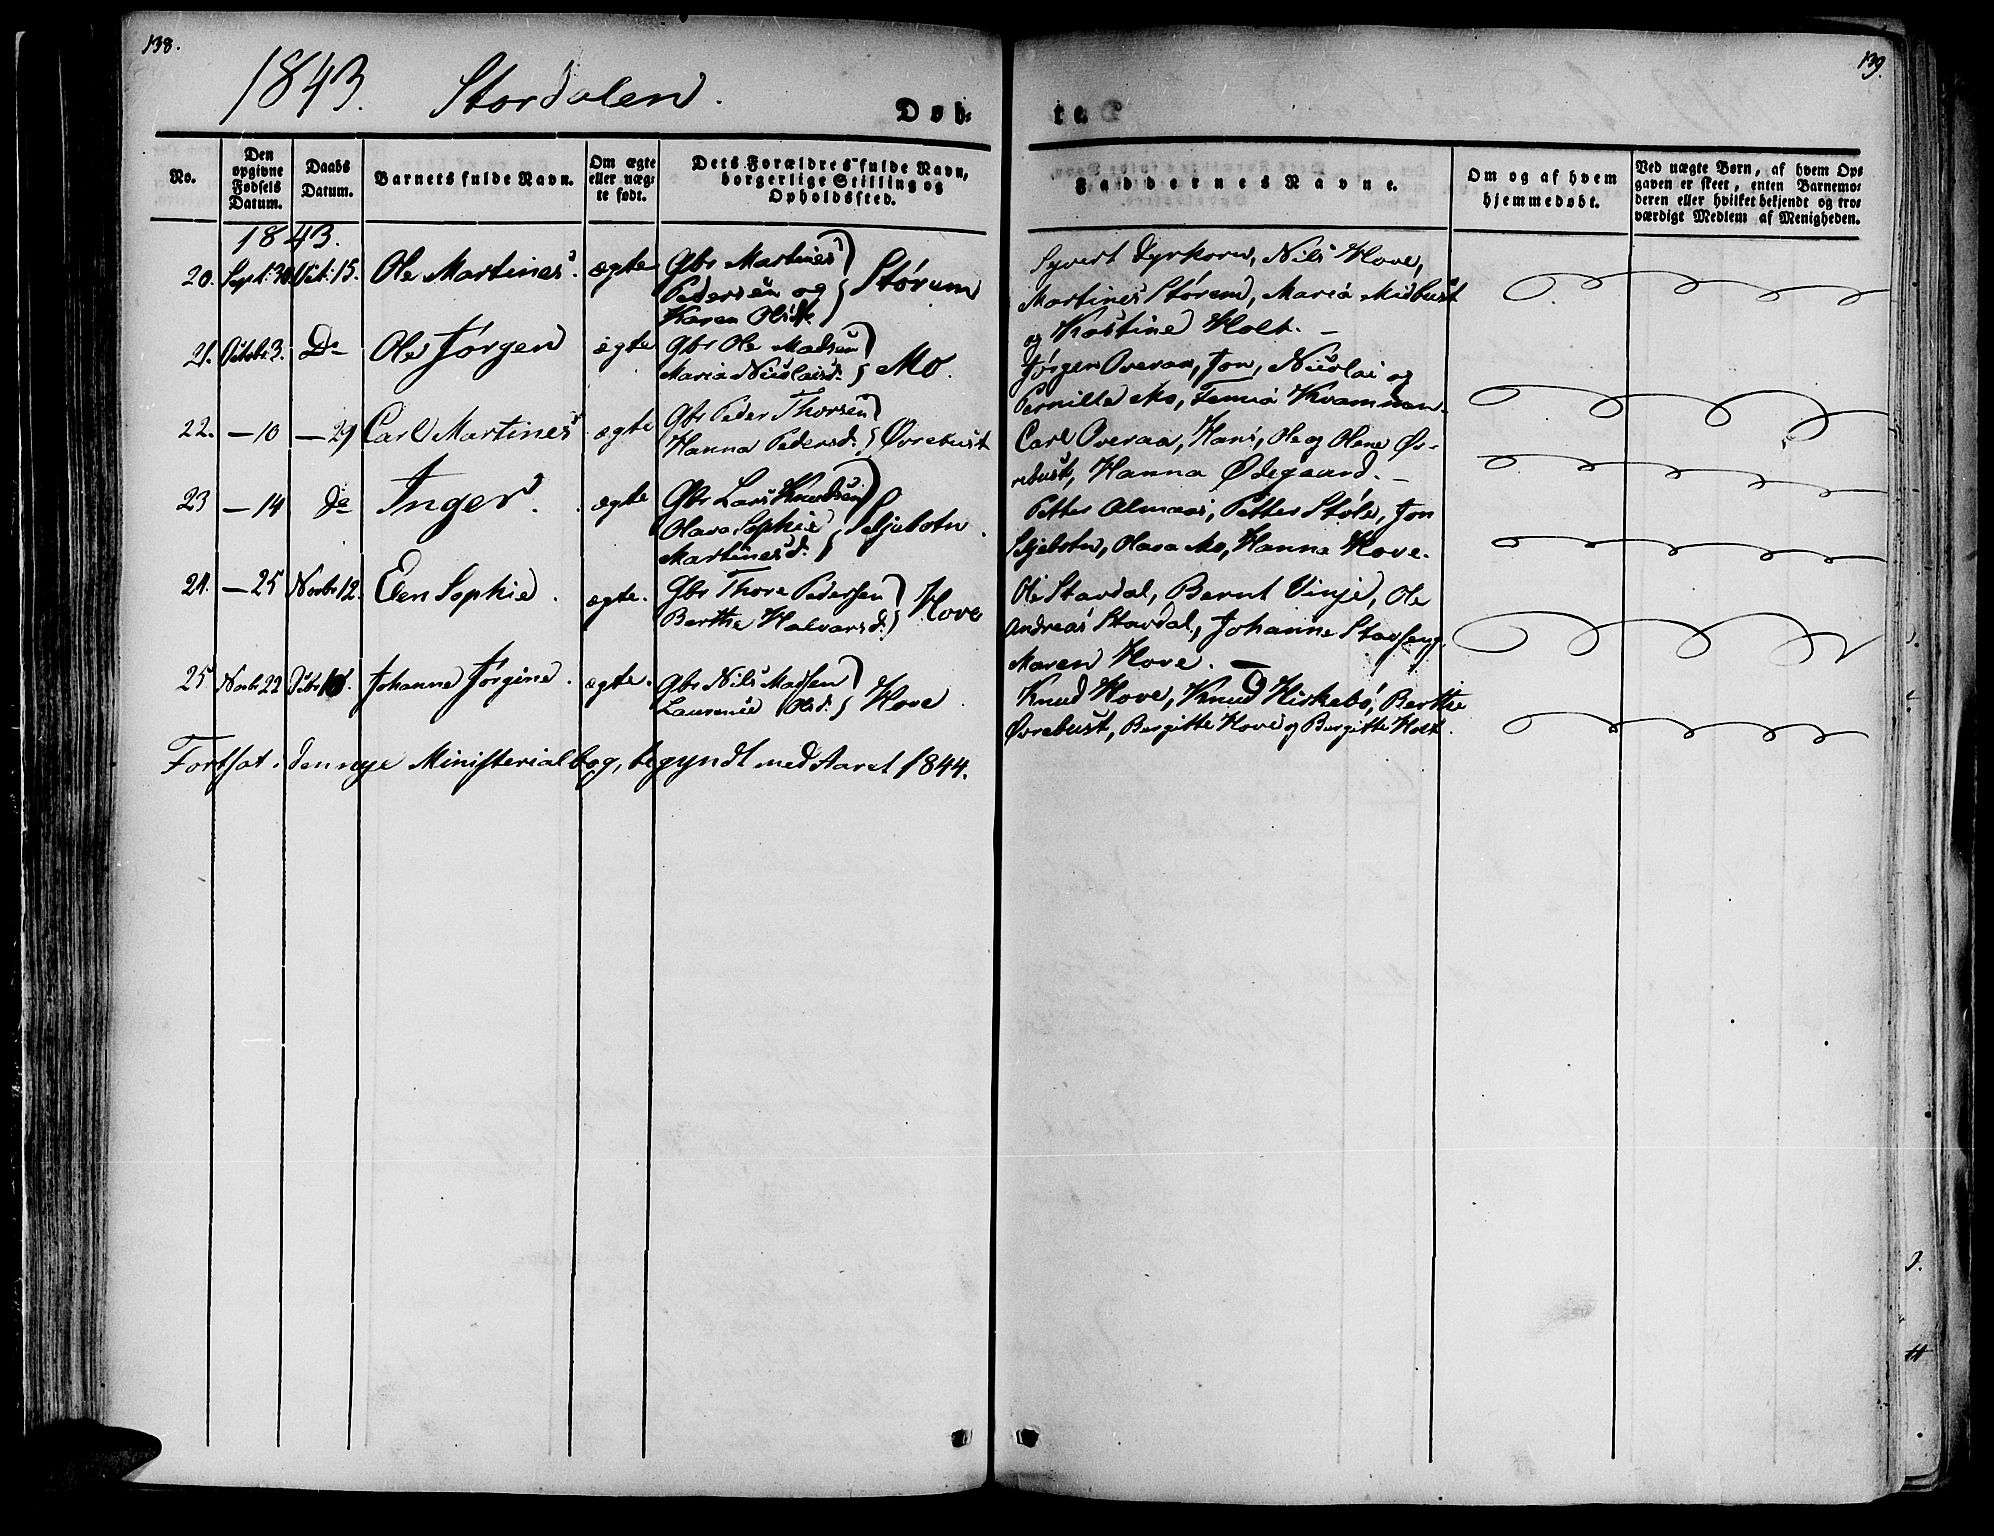 138.
1843. Stordalen.
Døb-
No.
Den
opgivne
Fødsels
Datum.
Daabs
Datum.
Barnets fulde Navn.
Om ægte
eller uæg-
te født.
Dets Forældres fulde Navn,
borgerlige Stilling og
Opholdssted.
1843.
20. Sept: 30 Oct: 15. Ole Martines. ægte Gbr Martines
Pedersen og Størum
Karen Olsd.
21. Octobr 3. Do Ole Jørgen ægte Gbr Ole Madsen
Maria Nicolaisd. Mo.
22. — 10 — 29 Carl Martines ægte Gbr Peder Thorsen
Hanna Pedersd. Øvrebust
23 — 14 do Inger. ægte Gbr Lars Knudsen
Olava Sophie Seljebotn.
Martinesd.
24. — 25 Novbr 12. Elen Sophie. ægte. Gbr Thore Pedersen
Berthe Halvorsd. Hove
25 Novbr 22 Johanne Jørgine. ægte. Gbr Nils Madsen
Laurense Olsd. Hove.
Fortsat i den nye Ministerialbog, begyndt med Aaret 1844.
139.
te.
Faddernes Navne.
Om og af hvem
hjemmedøbt.
Ved uægte Børn, af hvem Op-
gaven er skeet, enten Barnemo-
deren eller hvilket bekjendt og tro-
værdigt Medlem af Menigheden.
Syvert Dyrkorn, Nils Hove,
Martines Størem, Maria Midbust
og Holt. —
Jørgen Overaa, Jon, Nicolai og
Pernille Mo,
Carl Overaa, Hans, Ole og Olane Øv-
rebust, Hanna Ødegaard. —
Petter Almaas, Petter Støle, Jon
Seljebotn, Olava Mo, Hanne Hove.
Ole Stavdal, Bernt Vinje, Ole
Andreas Stavdal, Johanne
Maren Hove. —
Knud Hove, Knud Kirkebø, Berthe
Øvrebust, Bergitte Hove og Bergitte Holt.